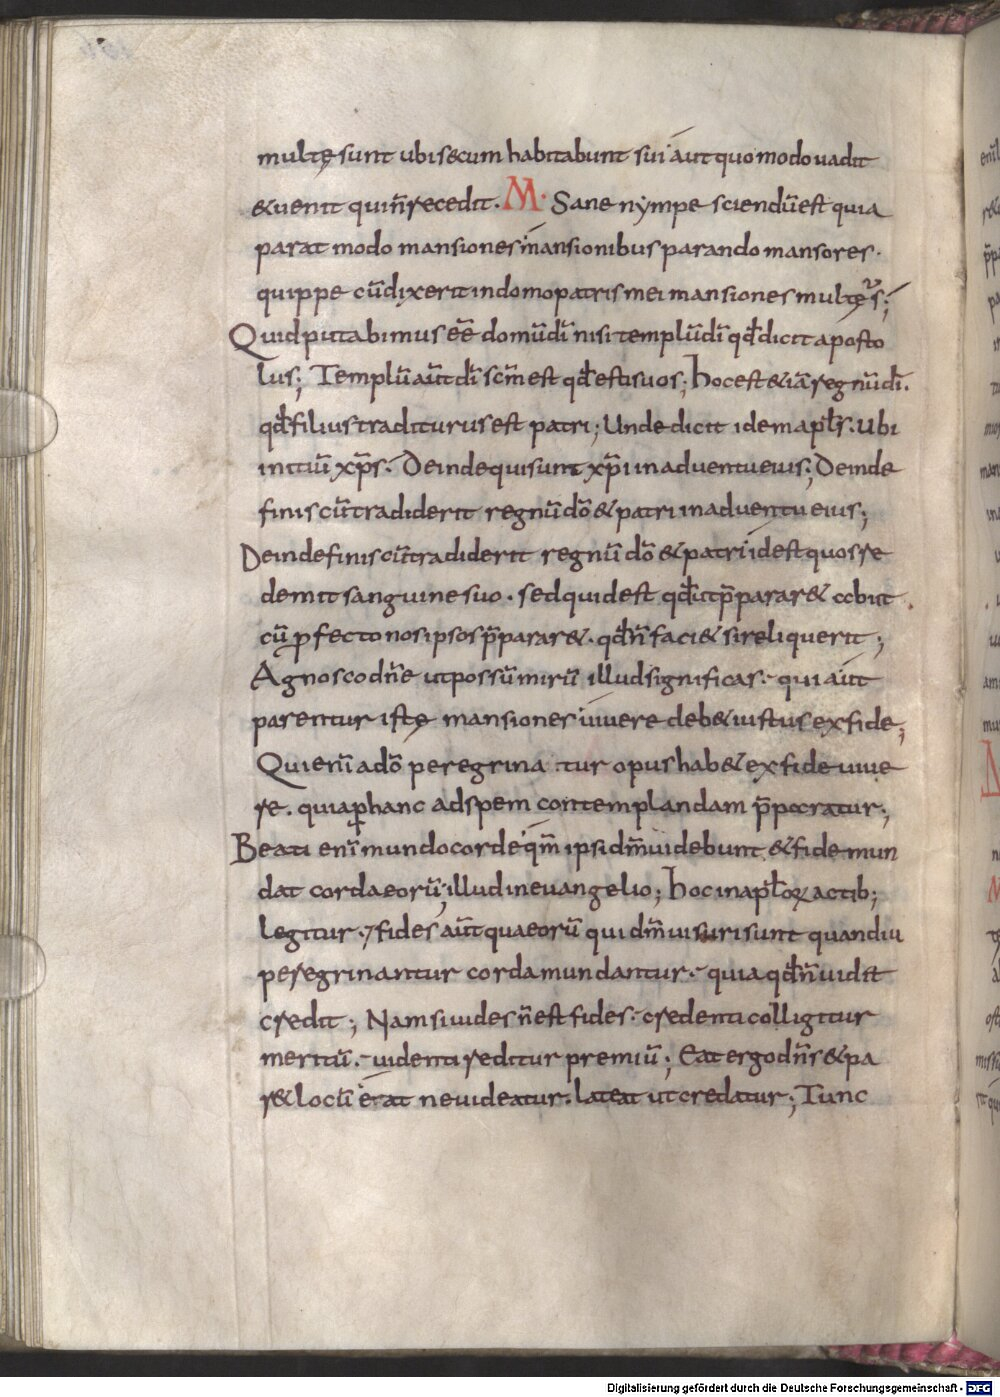 multę sunt ubi secum habitabunt sui aut quomodo uadit
& uenit qui n̄ recedit. M. Sane nympe sciendū est quia
parat modo mansiones mansionibus parando mansores.
quippe cū dixerit in domo patris mei mansiones multę s;
Quid putabimus eē domū dī nisi templū dī qđ dicit aposto
lus; Templū aūt dī scm̄ est qđ estis uos; hoc est & iā regnū dī.
qđ filius traditurus est patri; Unde dicit idem apłs. Ubi
initiū xp̄s. Deinde qui sunt xp̄i in aduentu eius; Deinde
finis cū tradiderit regnū dō & patri in aduentu eius;
Deinde finis cū tradiderit regnū dō & patri idest quos re
demit sanguine suo. sed quid est qđ it p̄parar&
cū ꝓfecto nos ipsos p̄parar&. qđ n̄ faci& si reliquerit;
Agnosco dn̄e ut possū mirū illud significas. qui aūt
parentur istę mansiones uiuere deb& iustus ex fide;
Qui enī a dō peregrinatur opus hab& ex fide uiue
re. quia ꝑ hanc ad spem contemplandam p̄paratur;
Beati enī mundo corde qm̄ ipsi dm̄ uidebunt & fide mun
dat corda eorū; illud in euangelio; hoc in apłoꝝ actib;
legitur. fides aūt qua eorū qui dm̄ uisuri sunt quandiu
peregrinantur corda mundantur. quia qđ n̄ uidit
credit; Nam si uides n̄ est fides. credenti colligitur
meritū. uidenti reditur premiū; Eat ergo dn̄s & pa
r& locū eat ne uideatur. lateat ut credatur; Tunc
Digitalisierung gefördert durch die Deutsche Forschungsgemeinschaft - DFG